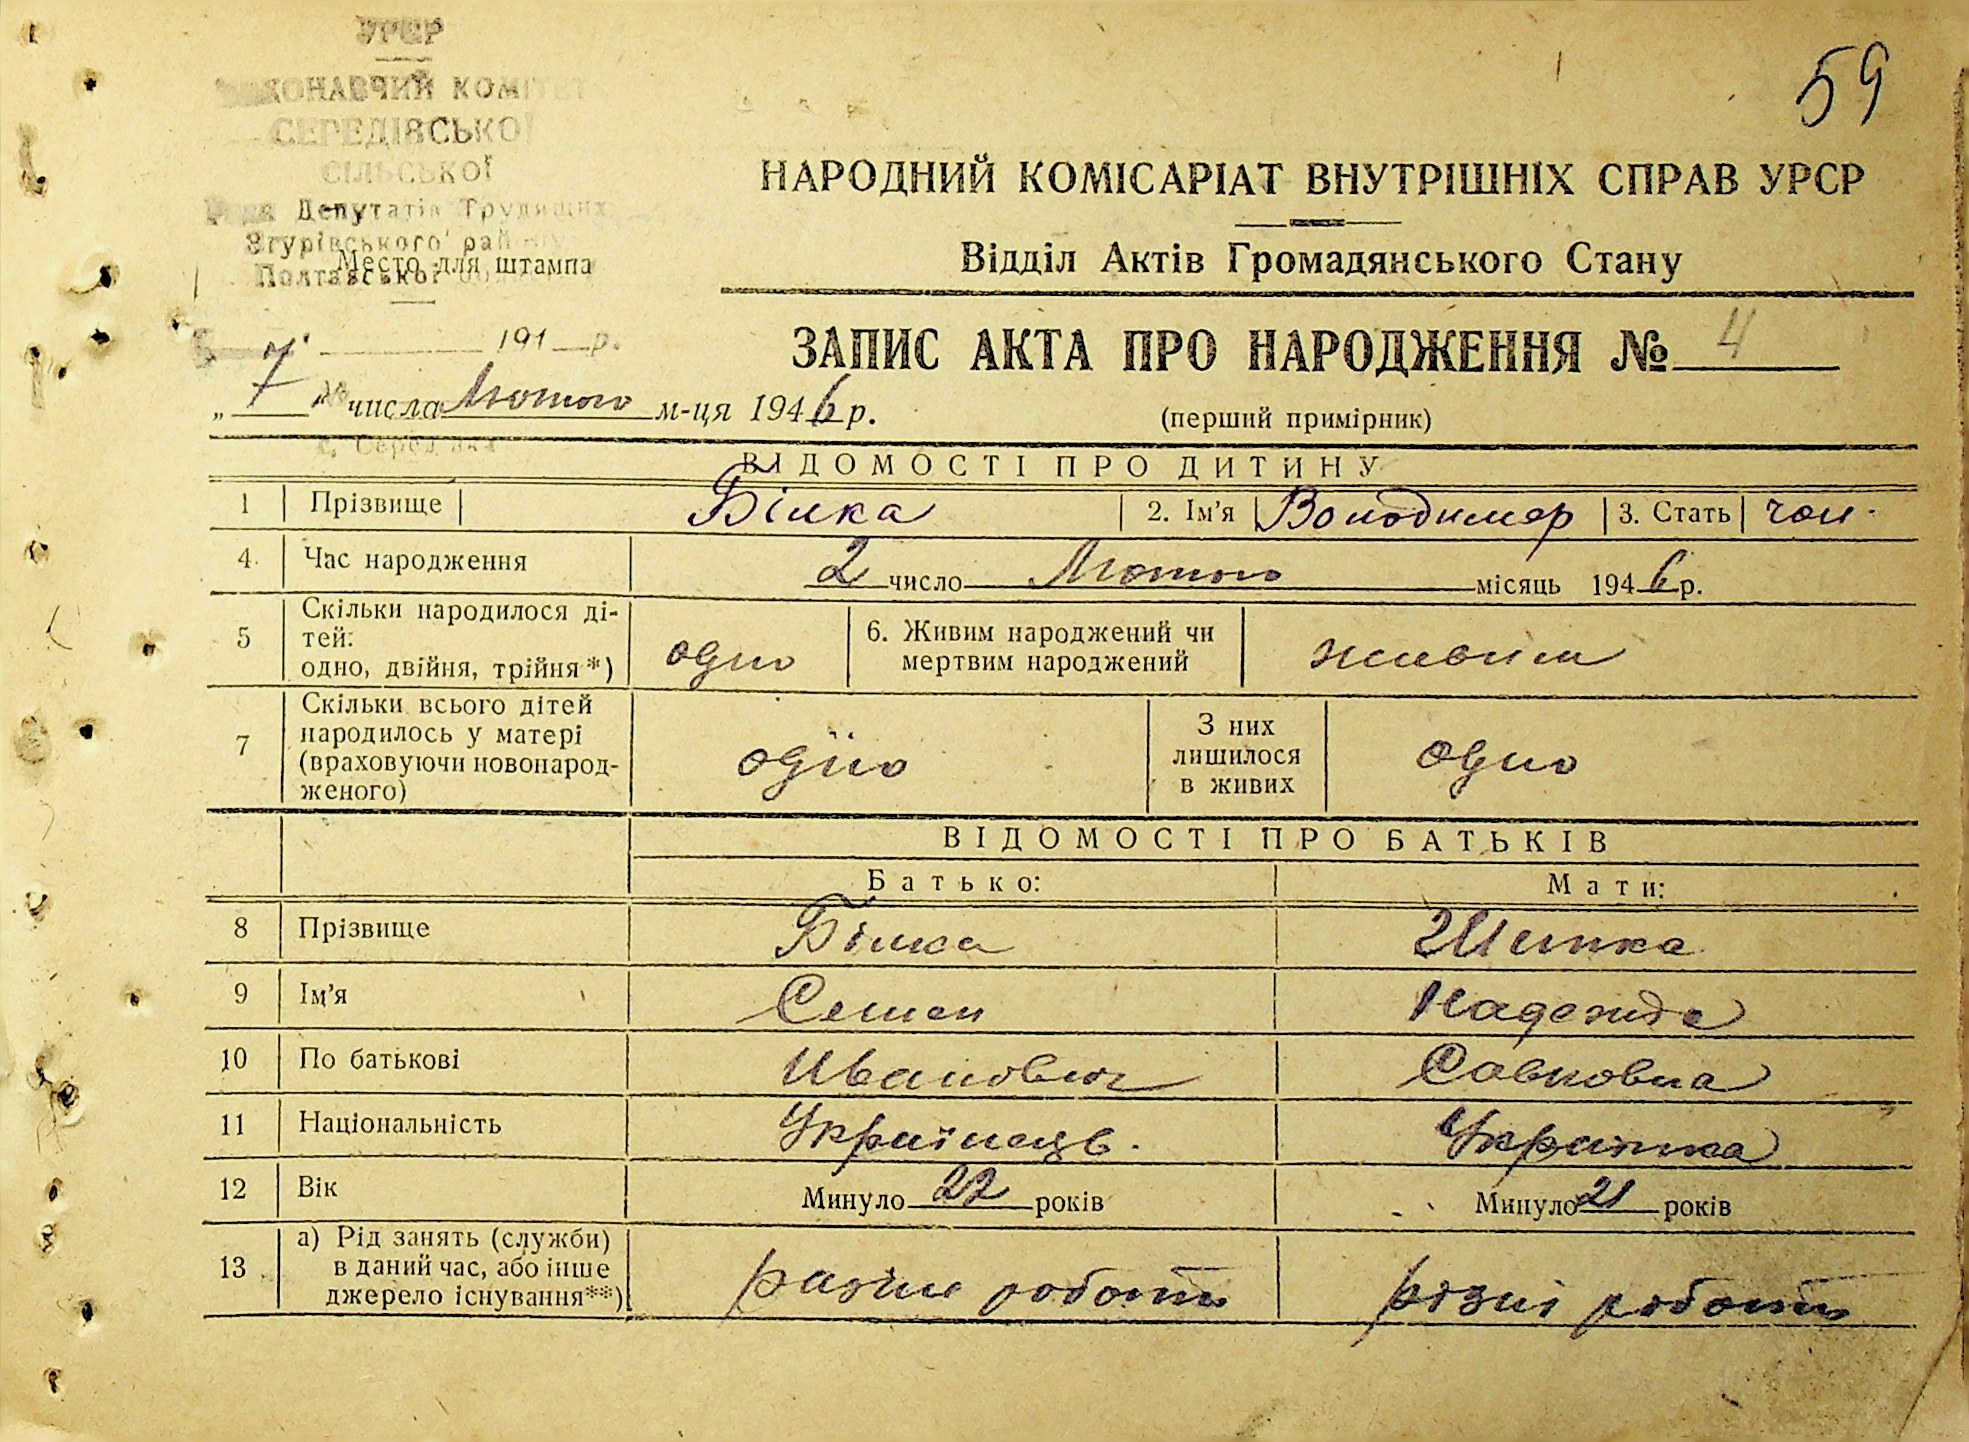 59
УРСР
ВИКОНАВЧИЙ КОМІТЕТ
СЕРЕДІВСЬКОЇ
СІЛЬСЬКОЇ
Ради Депутатів Трудящих
Згурівського району
Полтавської
Место для штампа
191 р.
с. Середівка
НАРОДНИЙ КОМІСАРІАТ ВНУТРІШНІХ СПРАВ УРСР
Відділ Актів Громадянського Стану
ЗАПИС АКТА ПРО НАРОДЖЕННЯ № 4
„ 7 " числа Лютого м-ця 1946 р.
(перший примірник)
ВІДОМОСТІ ПРО ДИТИНУ
1 Прізвище Білка 2. Ім'я Володимер 3. Стать чол.
4 Час народження 2 число Лютого місяць 1946 р.
5 Скільки народилося ді-
тей:
одно, двійня, трійня*) одно 6. Живим народжений чи
мертвим народжений живим
7 Скільки всього дітей
народилось у матері
(враховуючи новонарод-
женого) одно З них
лишилося
в живих одно
ВІДОМОСТІ ПРО БАТЬКІВ
Батько: Мати:
8 Прізвище Білка
9 Ім'я Семен Надежда
10 По батькові Иванович Савковна
11 Національність Українець. Українка
12 Вік Минуло 22 років Минуло 21 років
13 а) Рід занять (служби)
в даний час, або інше
джерело існування**) разни роботи різні роботи